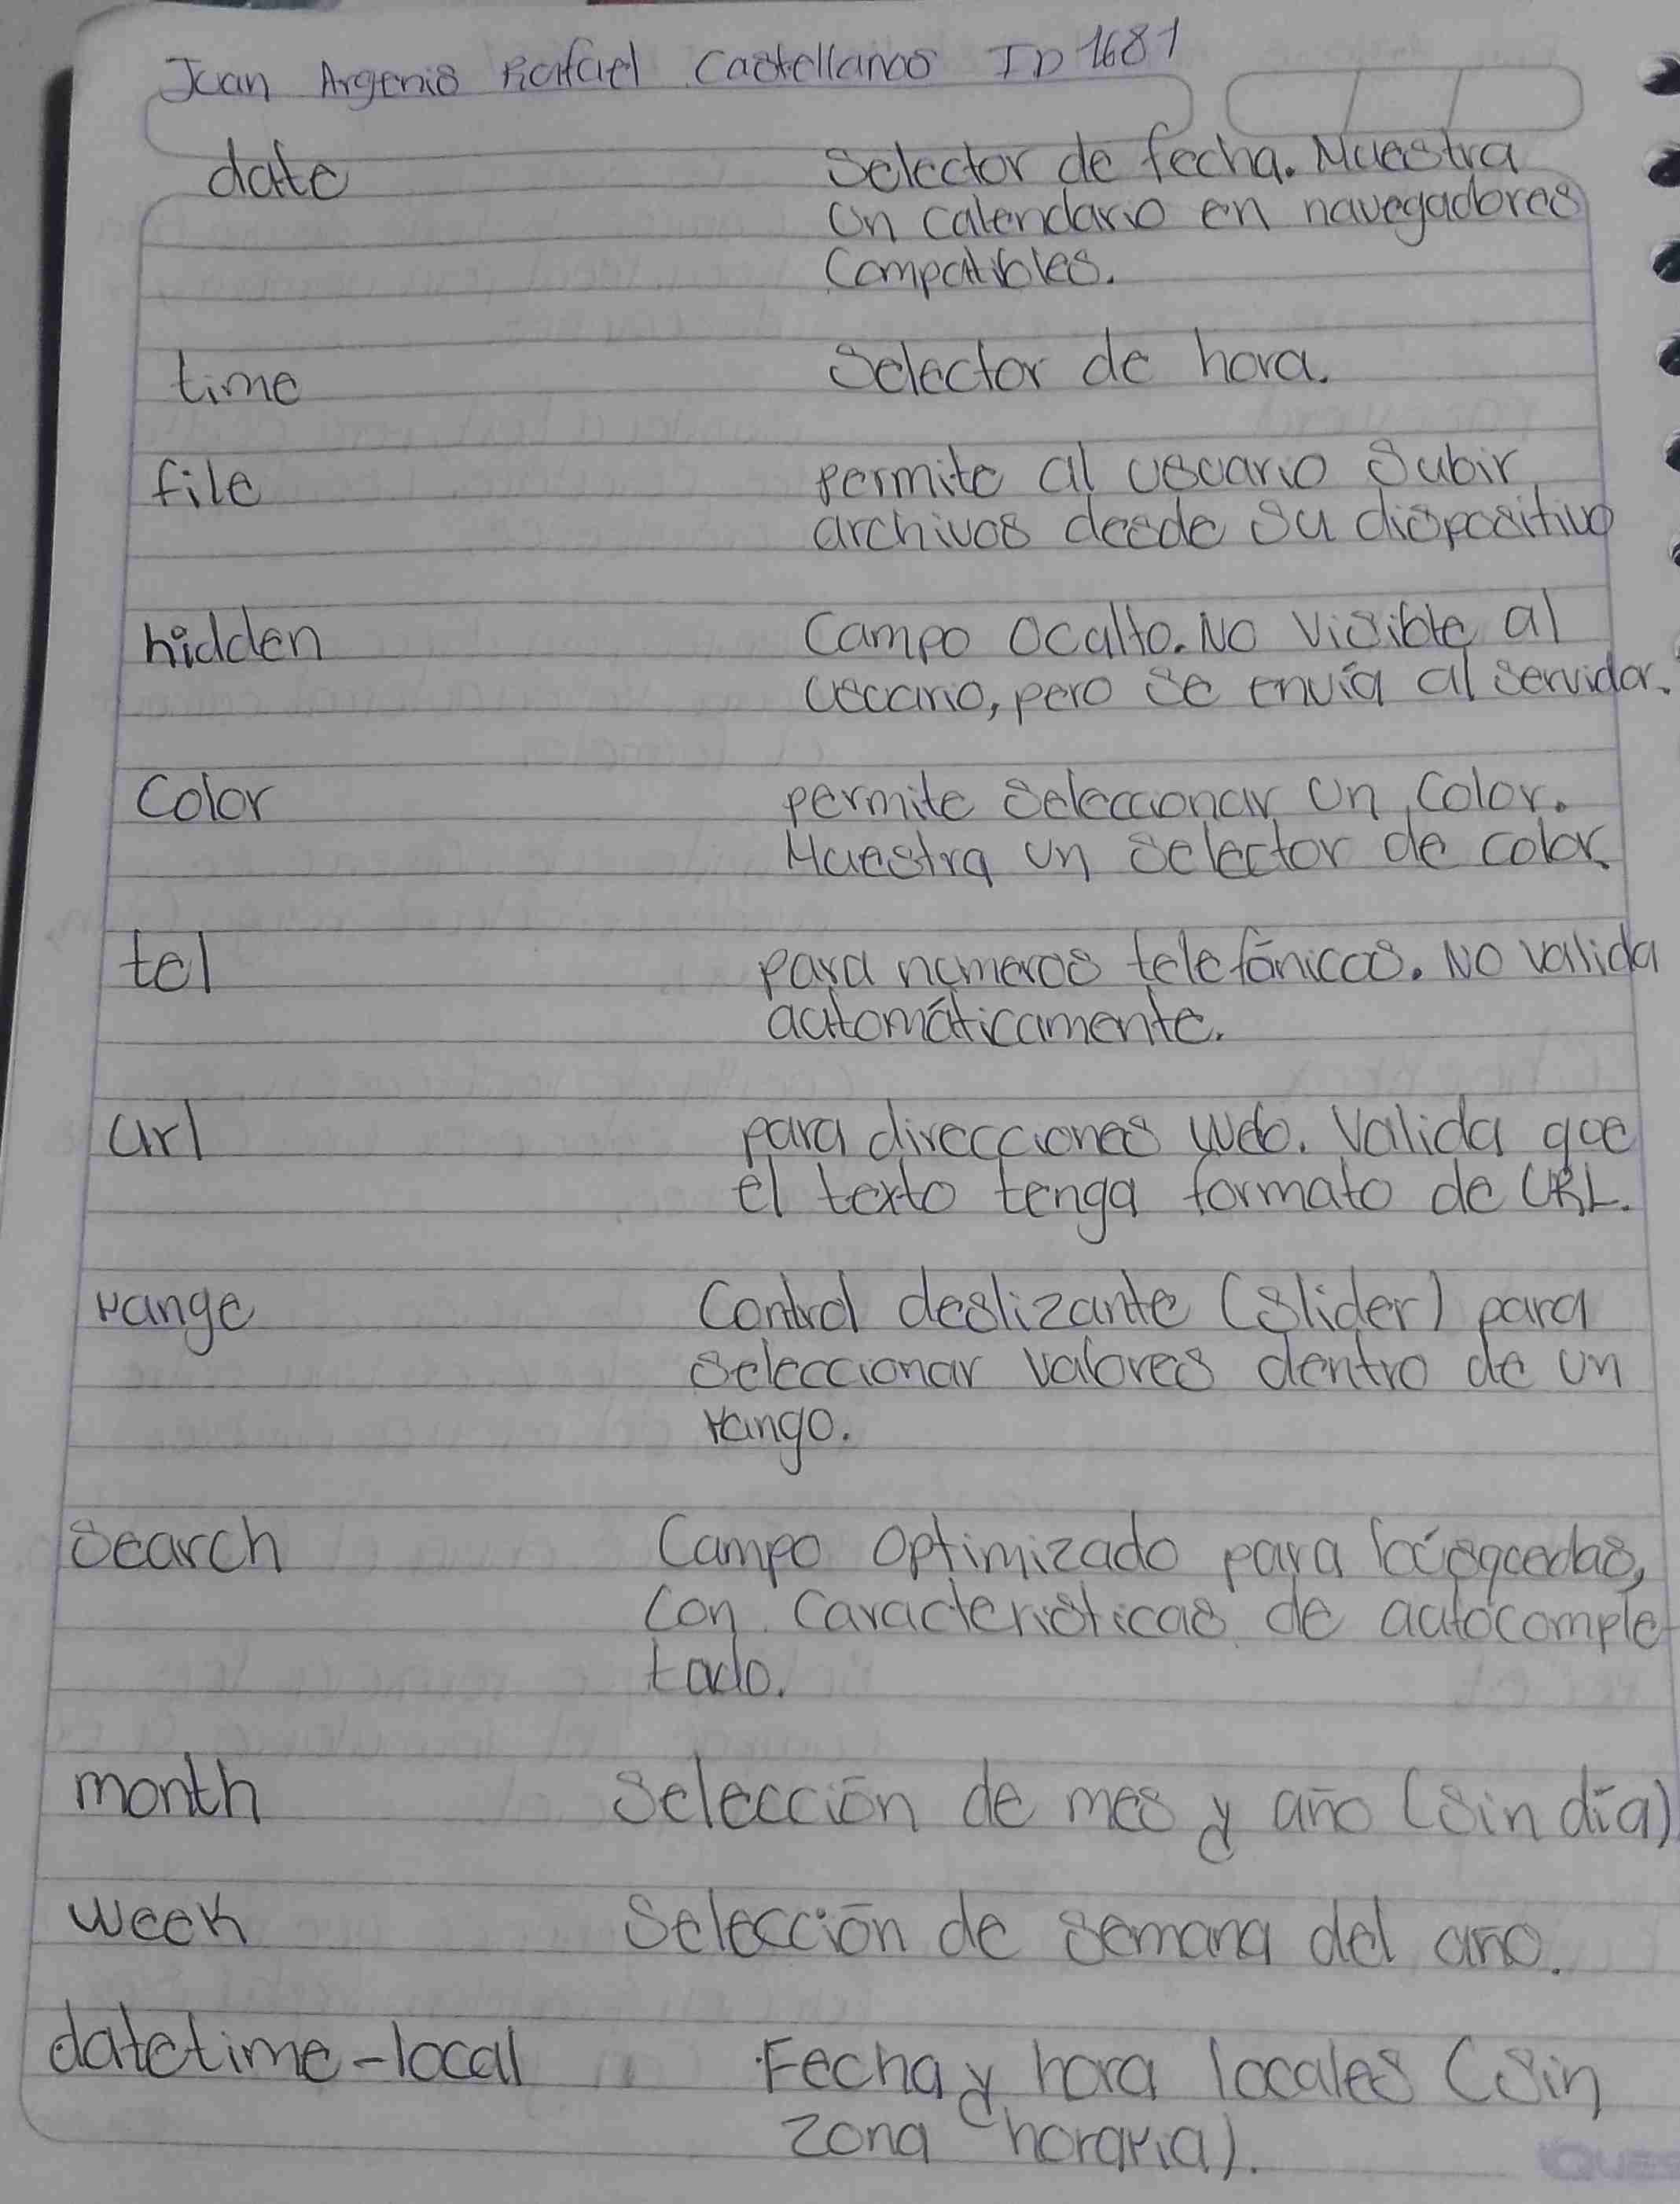 Juan Argenis Rafael Castellanos ID 1681
date Selector de fecha. Muestra
un calendario en navegadores
compatibles.
time Selector de hora.
file permite al usuario subir
archivos desde su dispositivo
hidden Campo oculto. No visible al
usuario, pero se envía al servidor.
Color permite seleccionar un color.
Muestra un selector de color.
tel para números telefónicos. No valida
automáticamente.
url para direcciones web. Valida que
el texto tenga formato de URL.
range Control deslizante (slider) para
seleccionar valores dentro de un
rango.
Search Campo optimizado para búsquedas,
con características de autocomple-
tado.
month Selección de mes y año (sin día)
week Selección de semana del año.
datetime-local Fecha y hora locales (sin
zona horaria).